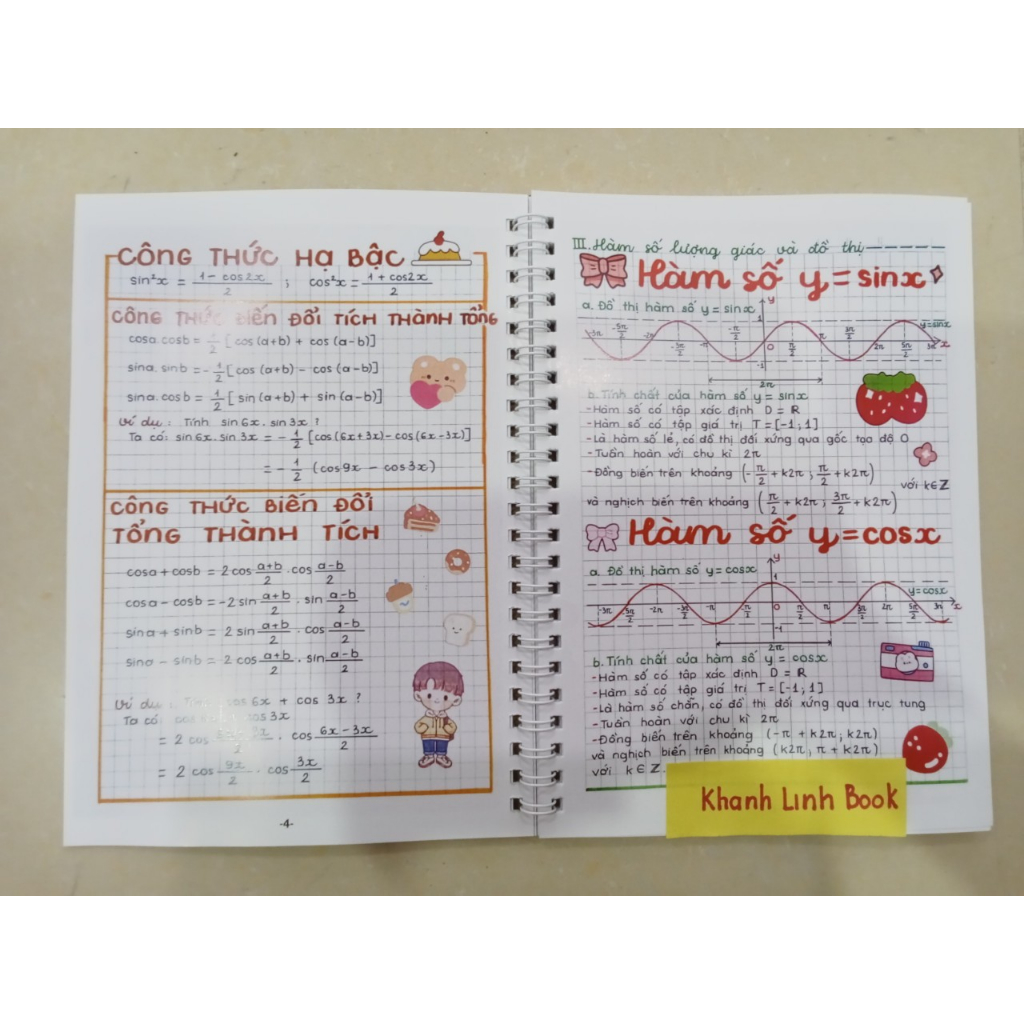 CÔNG THỨC HẠ BẬC
sin²x = (1 - cos2x)/2 ; cos²x = (1 + cos2x)/2
CÔNG THỨC BIẾN ĐỔI TÍCH THÀNH TỔNG
cosa.cosb = 1/2 [cos(a+b) + cos(a-b)]
sina.sinb = -1/2 [cos(a+b) - cos(a-b)]
sina.cosb = 1/2 [sin(a+b) + sin(a-b)]
Ví dụ: Tính sin6x.sin3x ?
Ta có: sin6x.sin3x = -1/2 [cos(6x+3x)-cos(6x-3x)]
= -1/2 (cos9x - cos3x)
CÔNG THỨC BIẾN ĐỔI
TỔNG THÀNH TÍCH
cosa + cosb = 2cos (a+b)/2 . cos (a-b)/2
cosa - cosb = -2sin (a+b)/2 . sin (a-b)/2
sina + sinb = 2sin (a+b)/2 . cos (a-b)/2
sina - sinb = 2cos (a+b)/2 . sin (a-b)/2
Ví dụ : cos6x + cos 3x ?
Ta có: cos3x
= 2 cos . cos (6x-3x)/2
= 2 cos 9x/2 . cos 3x/2
-4-
III. Hàm số lượng giác và đồ thị
Hàm số y = sinx
a. Đồ thị hàm số y = sinx
y
1
y=sinx
-3π -5π/2 -2π -3π/2 -π -π/2 0 π/2 π 3π/2 2π 5π/2 3π x
-1
2π
b. Tính chất của hàm số y = sinx
- Hàm số có tập xác định D = R
- Hàm số có tập giá trị T = [-1;1]
- Là hàm số lẻ, có đồ thị đối xứng qua gốc tọa độ O
- Tuần hoàn với chu kì 2π
- Đồng biến trên khoảng (-π/2 + k2π ; π/2 + k2π)
với k∈Z
và nghịch biến trên khoảng (π/2 + k2π ; 3π/2 + k2π)
Hàm số y = cosx
a. Đồ thị hàm số y = cosx
y
1
y=cosx
-3π 5π/2 -2π -3π/2 -π -π/2 0 π/2 π 3π/2 2π 5π/2 3π x
-1
2π
b. Tính chất của hàm số y = cosx
- Hàm số có tập xác định D = R
- Hàm số có tập giá trị T = [-1;1]
- Là hàm số chẵn, có đồ thị đối xứng qua trục tung
- Tuần hoàn với chu kì 2π
- Đồng biến trên khoảng (-π + k2π; k2π)
và nghịch biến trên khoảng (k2π; π + k2π)
với k∈Z.
Khanh Linh Book